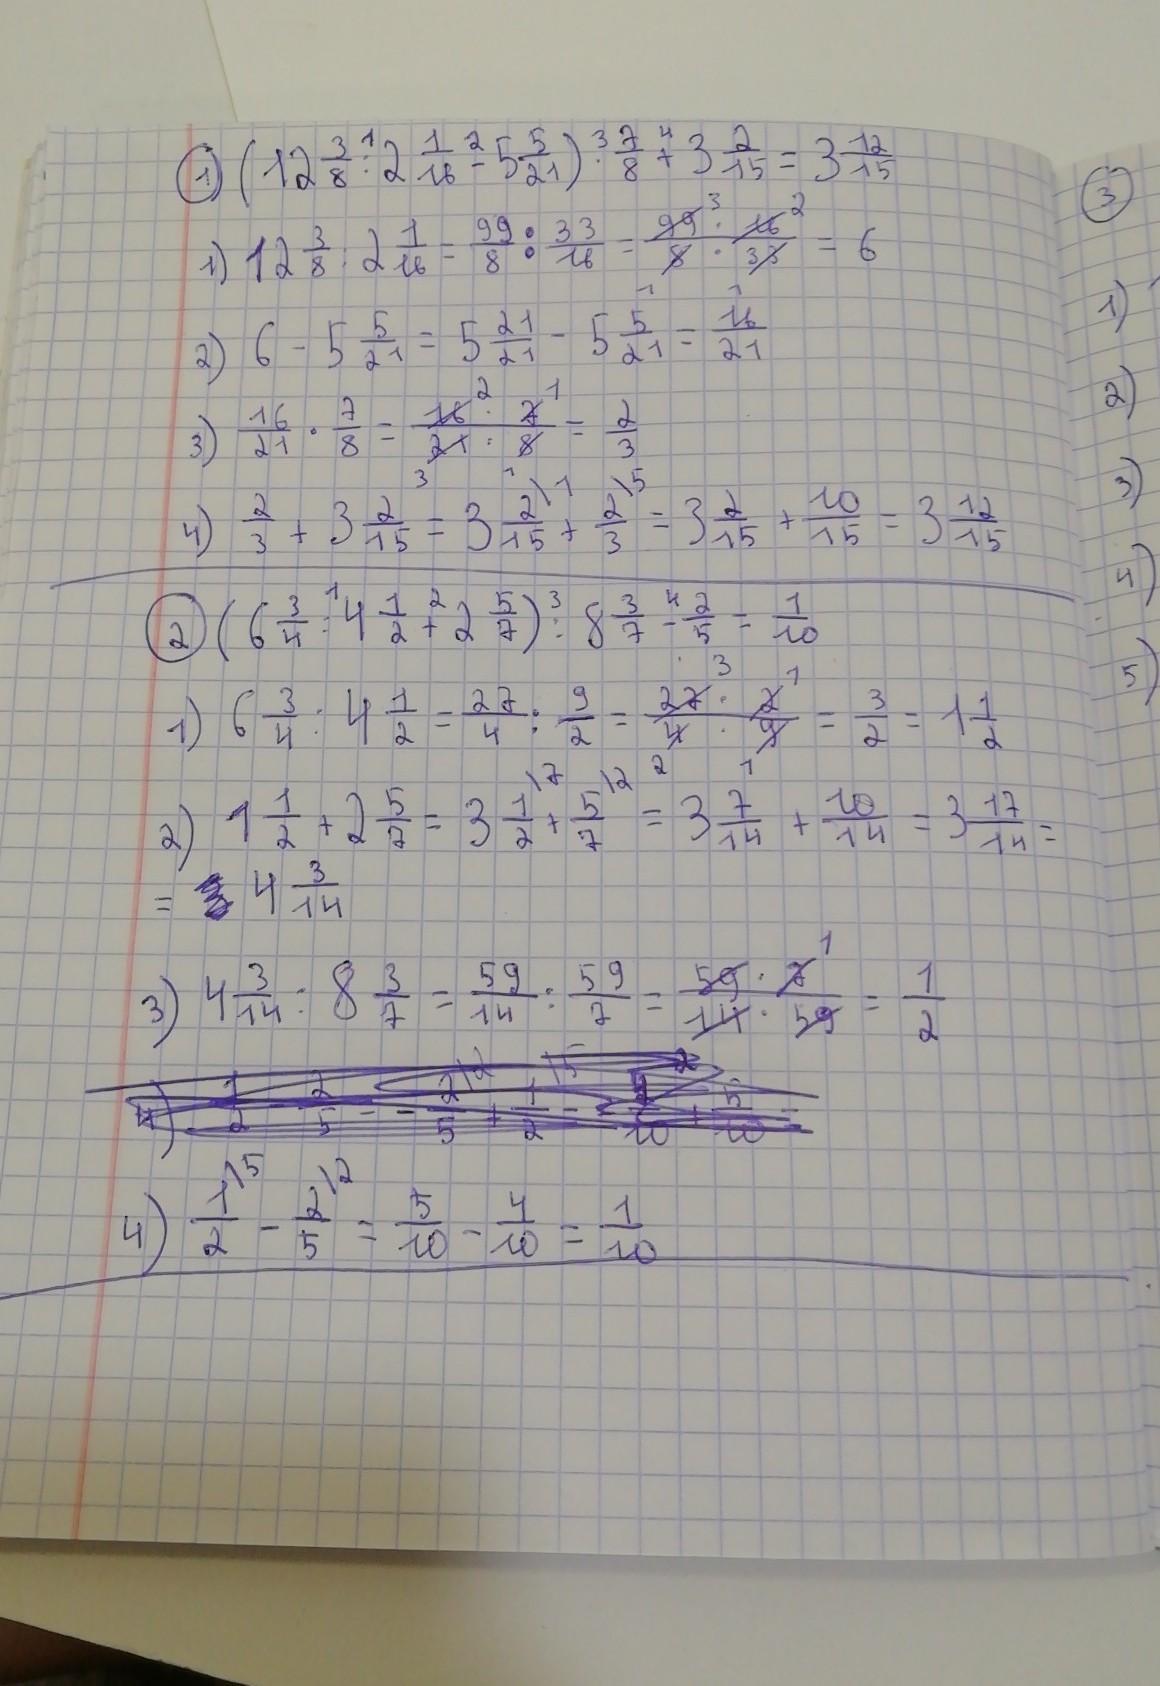 1) (12 3/8 : 2 1/16 - 5 5/21) · 7/8 + 3 2/15 = 3 12/15
1) 12 3/8 : 2 1/16 = 99/8 : 33/16 = 99 · 16 / 8 · 33 = 6
2) 6 - 5 5/21 = 5 21/21 - 5 5/21 = 16/21
3) 16/21 · 7/8 = 16 · 7 / 21 · 8 = 2/3
4) 2/3 + 3 2/15 = 3 2/15 \1 + 2/3 \5 = 3 2/15 + 10/15 = 3 12/15
2 (6 3/4 : 4 1/2 + 2 5/7) : 8 3/7 - 2/5 = 1/10
1) 6 3/4 : 4 1/2 = 27/4 : 9/2 = 27 · 2 / 4 · 9 = 3/2 = 1 1/2
2) 1 1/2 + 2 5/7 = 3 1/2 \7 + 5/7 \2 = 3 7/14 + 10/14 = 3 17/14 =
= 4 3/14
3) 4 3/14 : 8 3/7 = 59/14 : 59/7 = 59 · 7 / 14 · 59 = 1/2
4) 1/2 \5 - 2/5 \2 = 5/10 - 4/10 = 1/10
3
1)
2)
3)
4)
5)